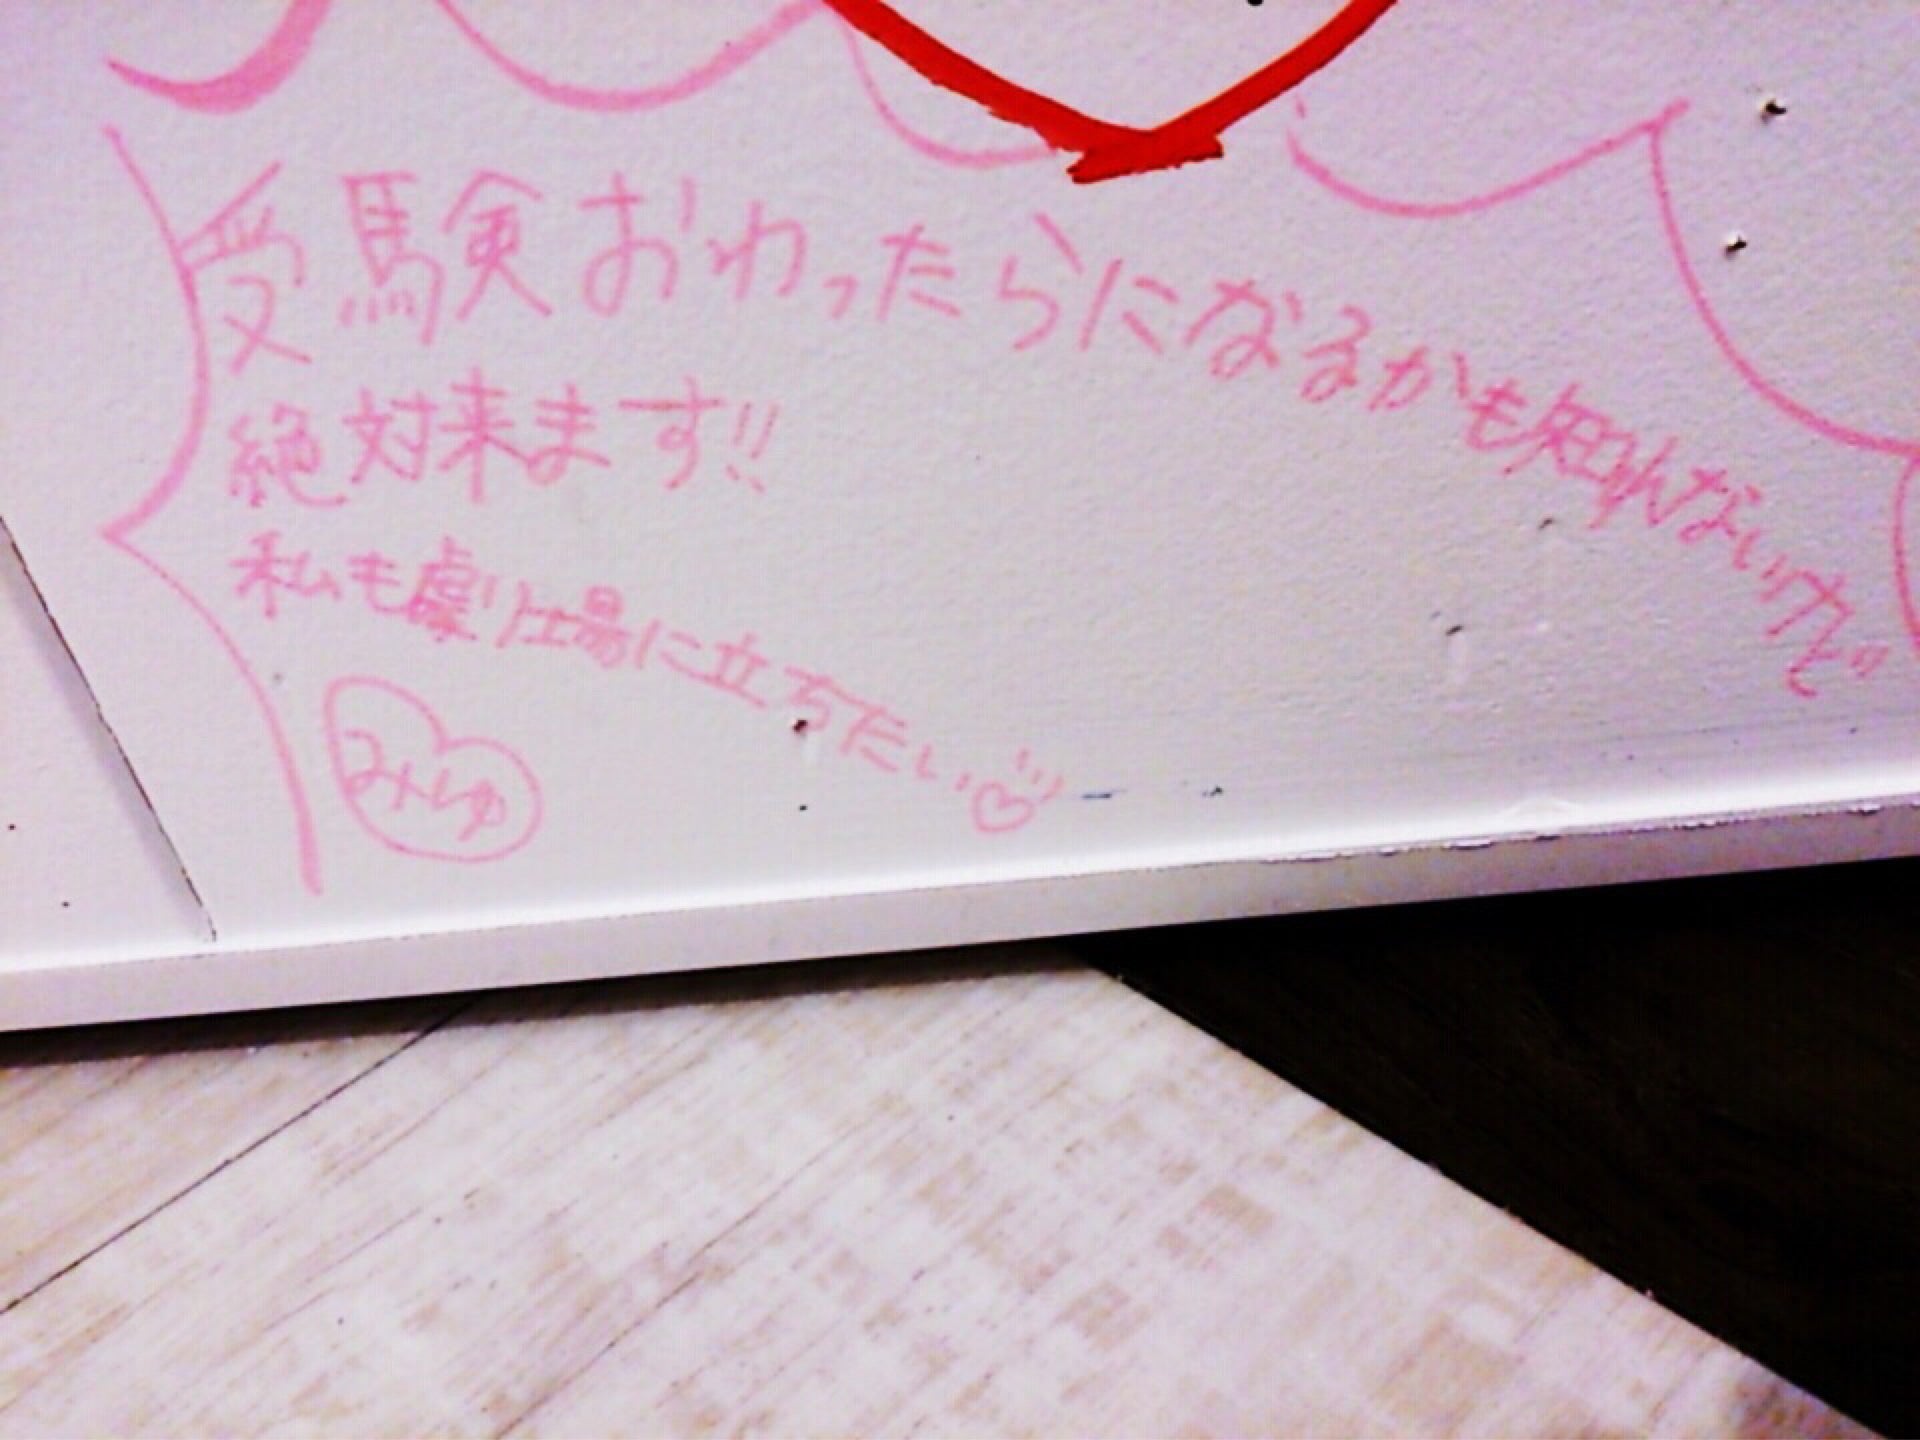 受験おわったらになるかも知んないけど
絶対来ます!!
私も劇場に立ちたい♡
みしゅ